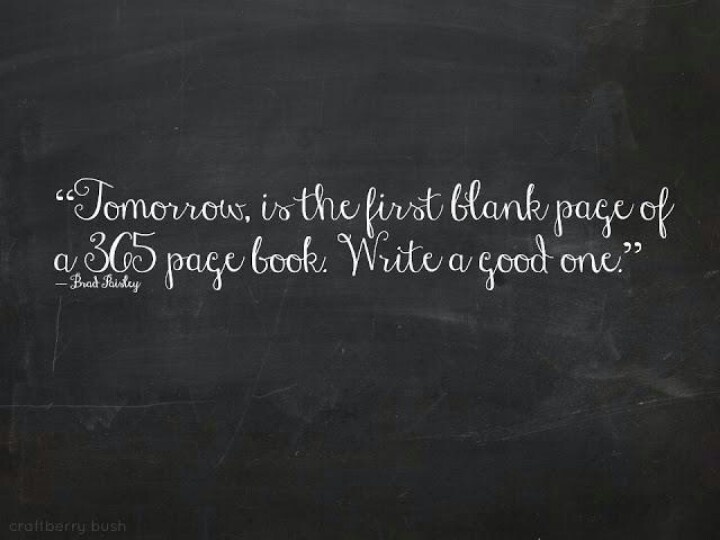 “Tomorrow, is the first blank page of
a 365 page book. Write a good one.”
— Brad Paisley
craftberry.bush